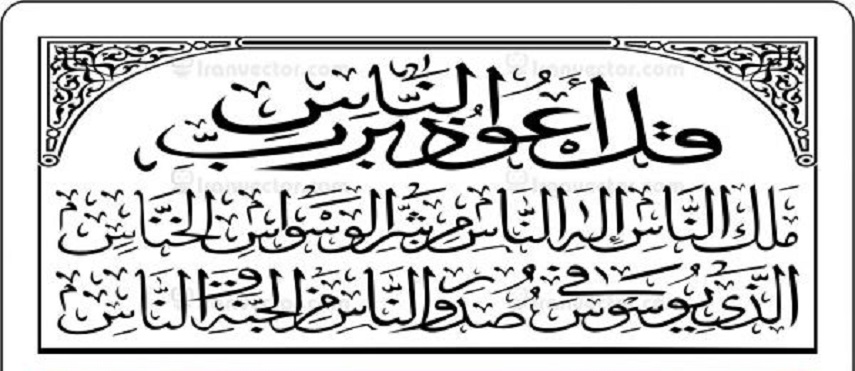 قل أعوذ برب الناس
ملك الناس إله الناس من شر الوسواس الخناس
الذي يوسوس في صدور الناس من الجنة و الناس
Iranvector.com Iranvector.com
Iranvector.com Iranvector.com